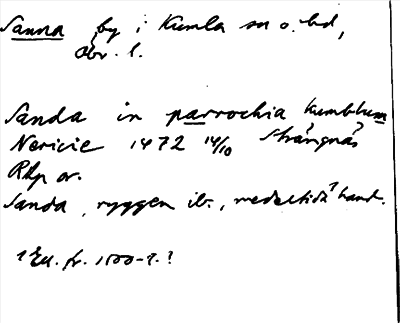 Sanna by i Kumla sn o. hd,
Öbr. l.
Sanda in parrochia Kumblum
Nericie 1472 14/10 Strängnäs
RAp or.
Sanda, ryggen ib., medeltida hand.
1 Ex. fr. 1500-t.?